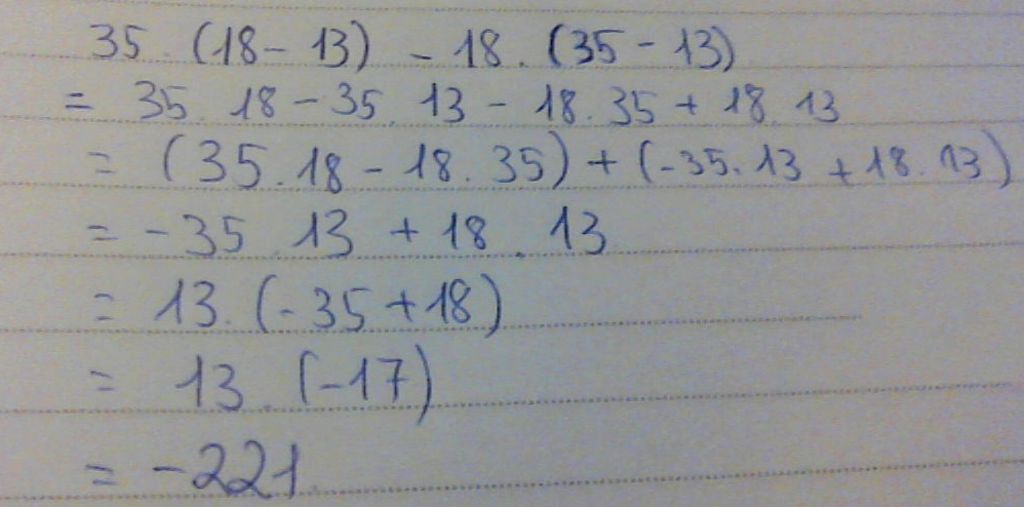 35 . (18 - 13) - 18 . (35 - 13)
= 35 . 18 - 35 . 13 - 18 . 35 + 18 . 13
= (35 . 18 - 18 . 35) + (-35 . 13 + 18 . 13)
= -35 . 13 + 18 . 13
= 13 . (-35 + 18)
= 13 . (-17)
= -221